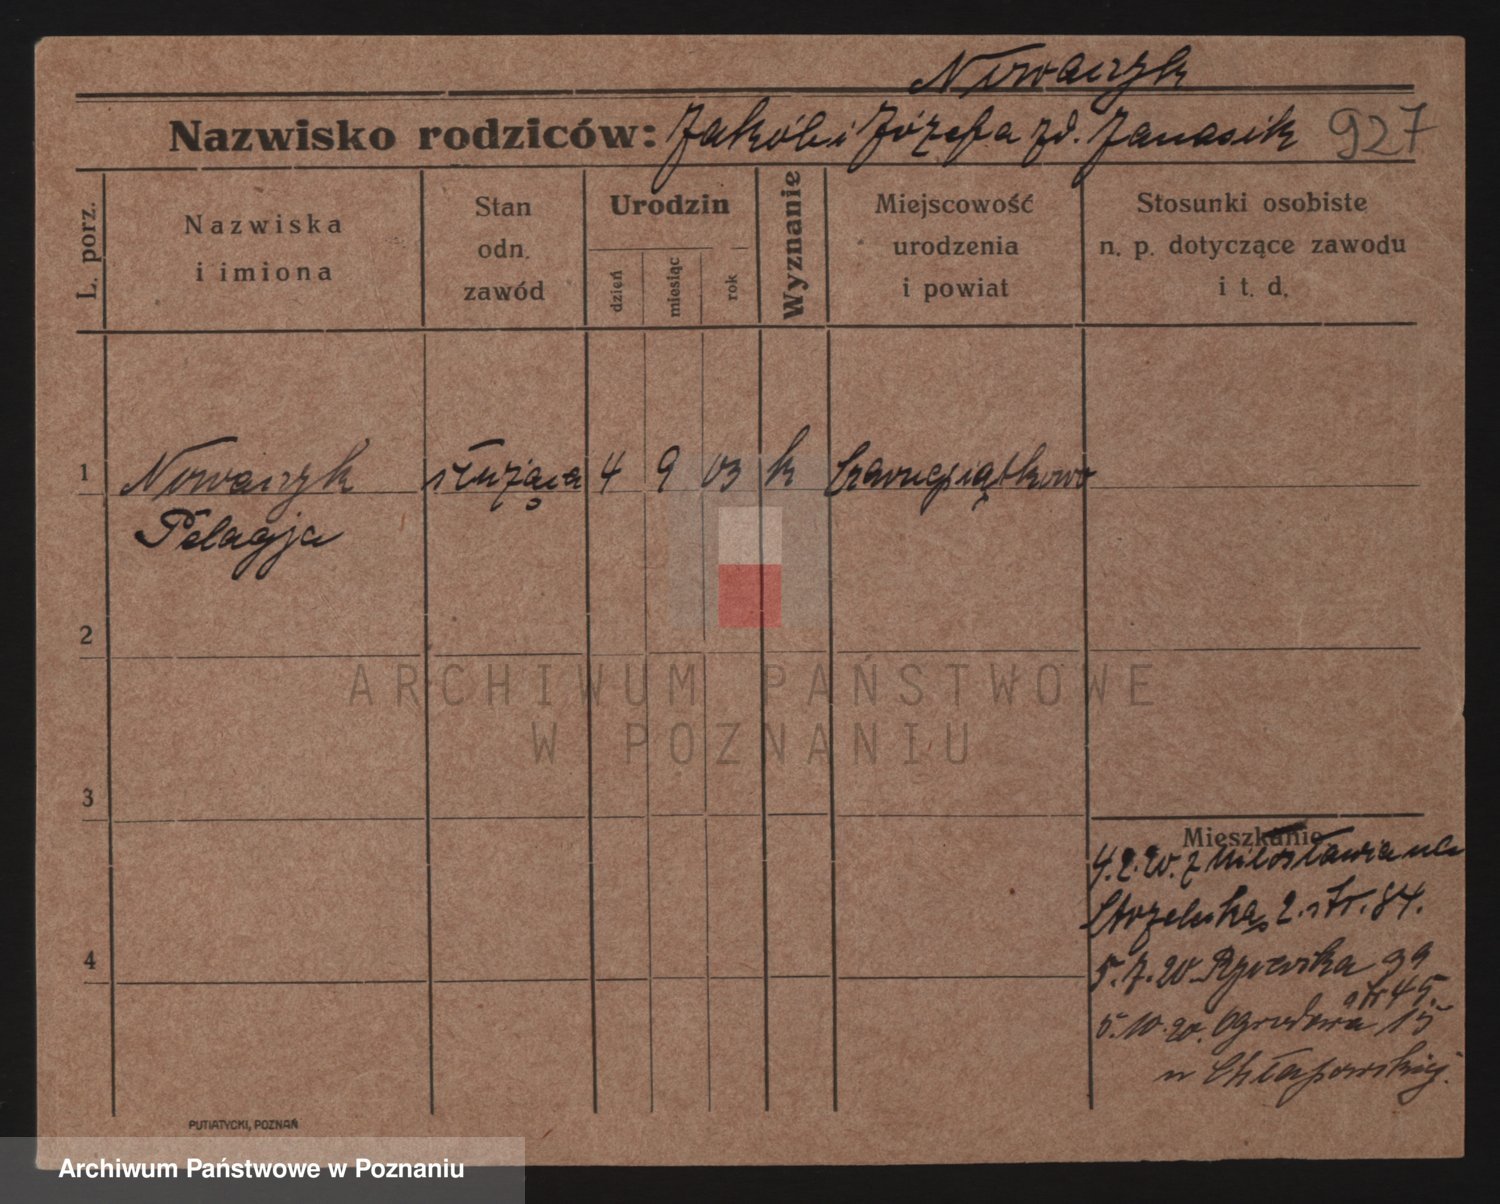 Nowaczyk
Nazwisko rodziców: Jakób i Józefa zd. Janasik 927
L. porz.
Nazwiska
i imiona
Stan
odn.
zawód
Urodzin
dzień
miesiąc
rok
Wyznanie
Miejscowość
urodzenia
i powiat
Stosunki osobiste
n. p. dotyczące zawodu
i t. d.
1 Nowaczyk służąca 4 9 03 k Czarnepiątkowo
Pelagja
2
ARCHIWUM PAŃSTWOWE
W POZNANIU
3
Mieszkanie
4.2.20. z Miłosławia na
Strzelecką 2. str. 84.
4
5.7.20. 99
str 45.
5.10.20. Ogrodowa 15
u Chłapowskiej.
PUTIATYCKI, POZNAŃ
Archiwum Państwowe w Poznaniu